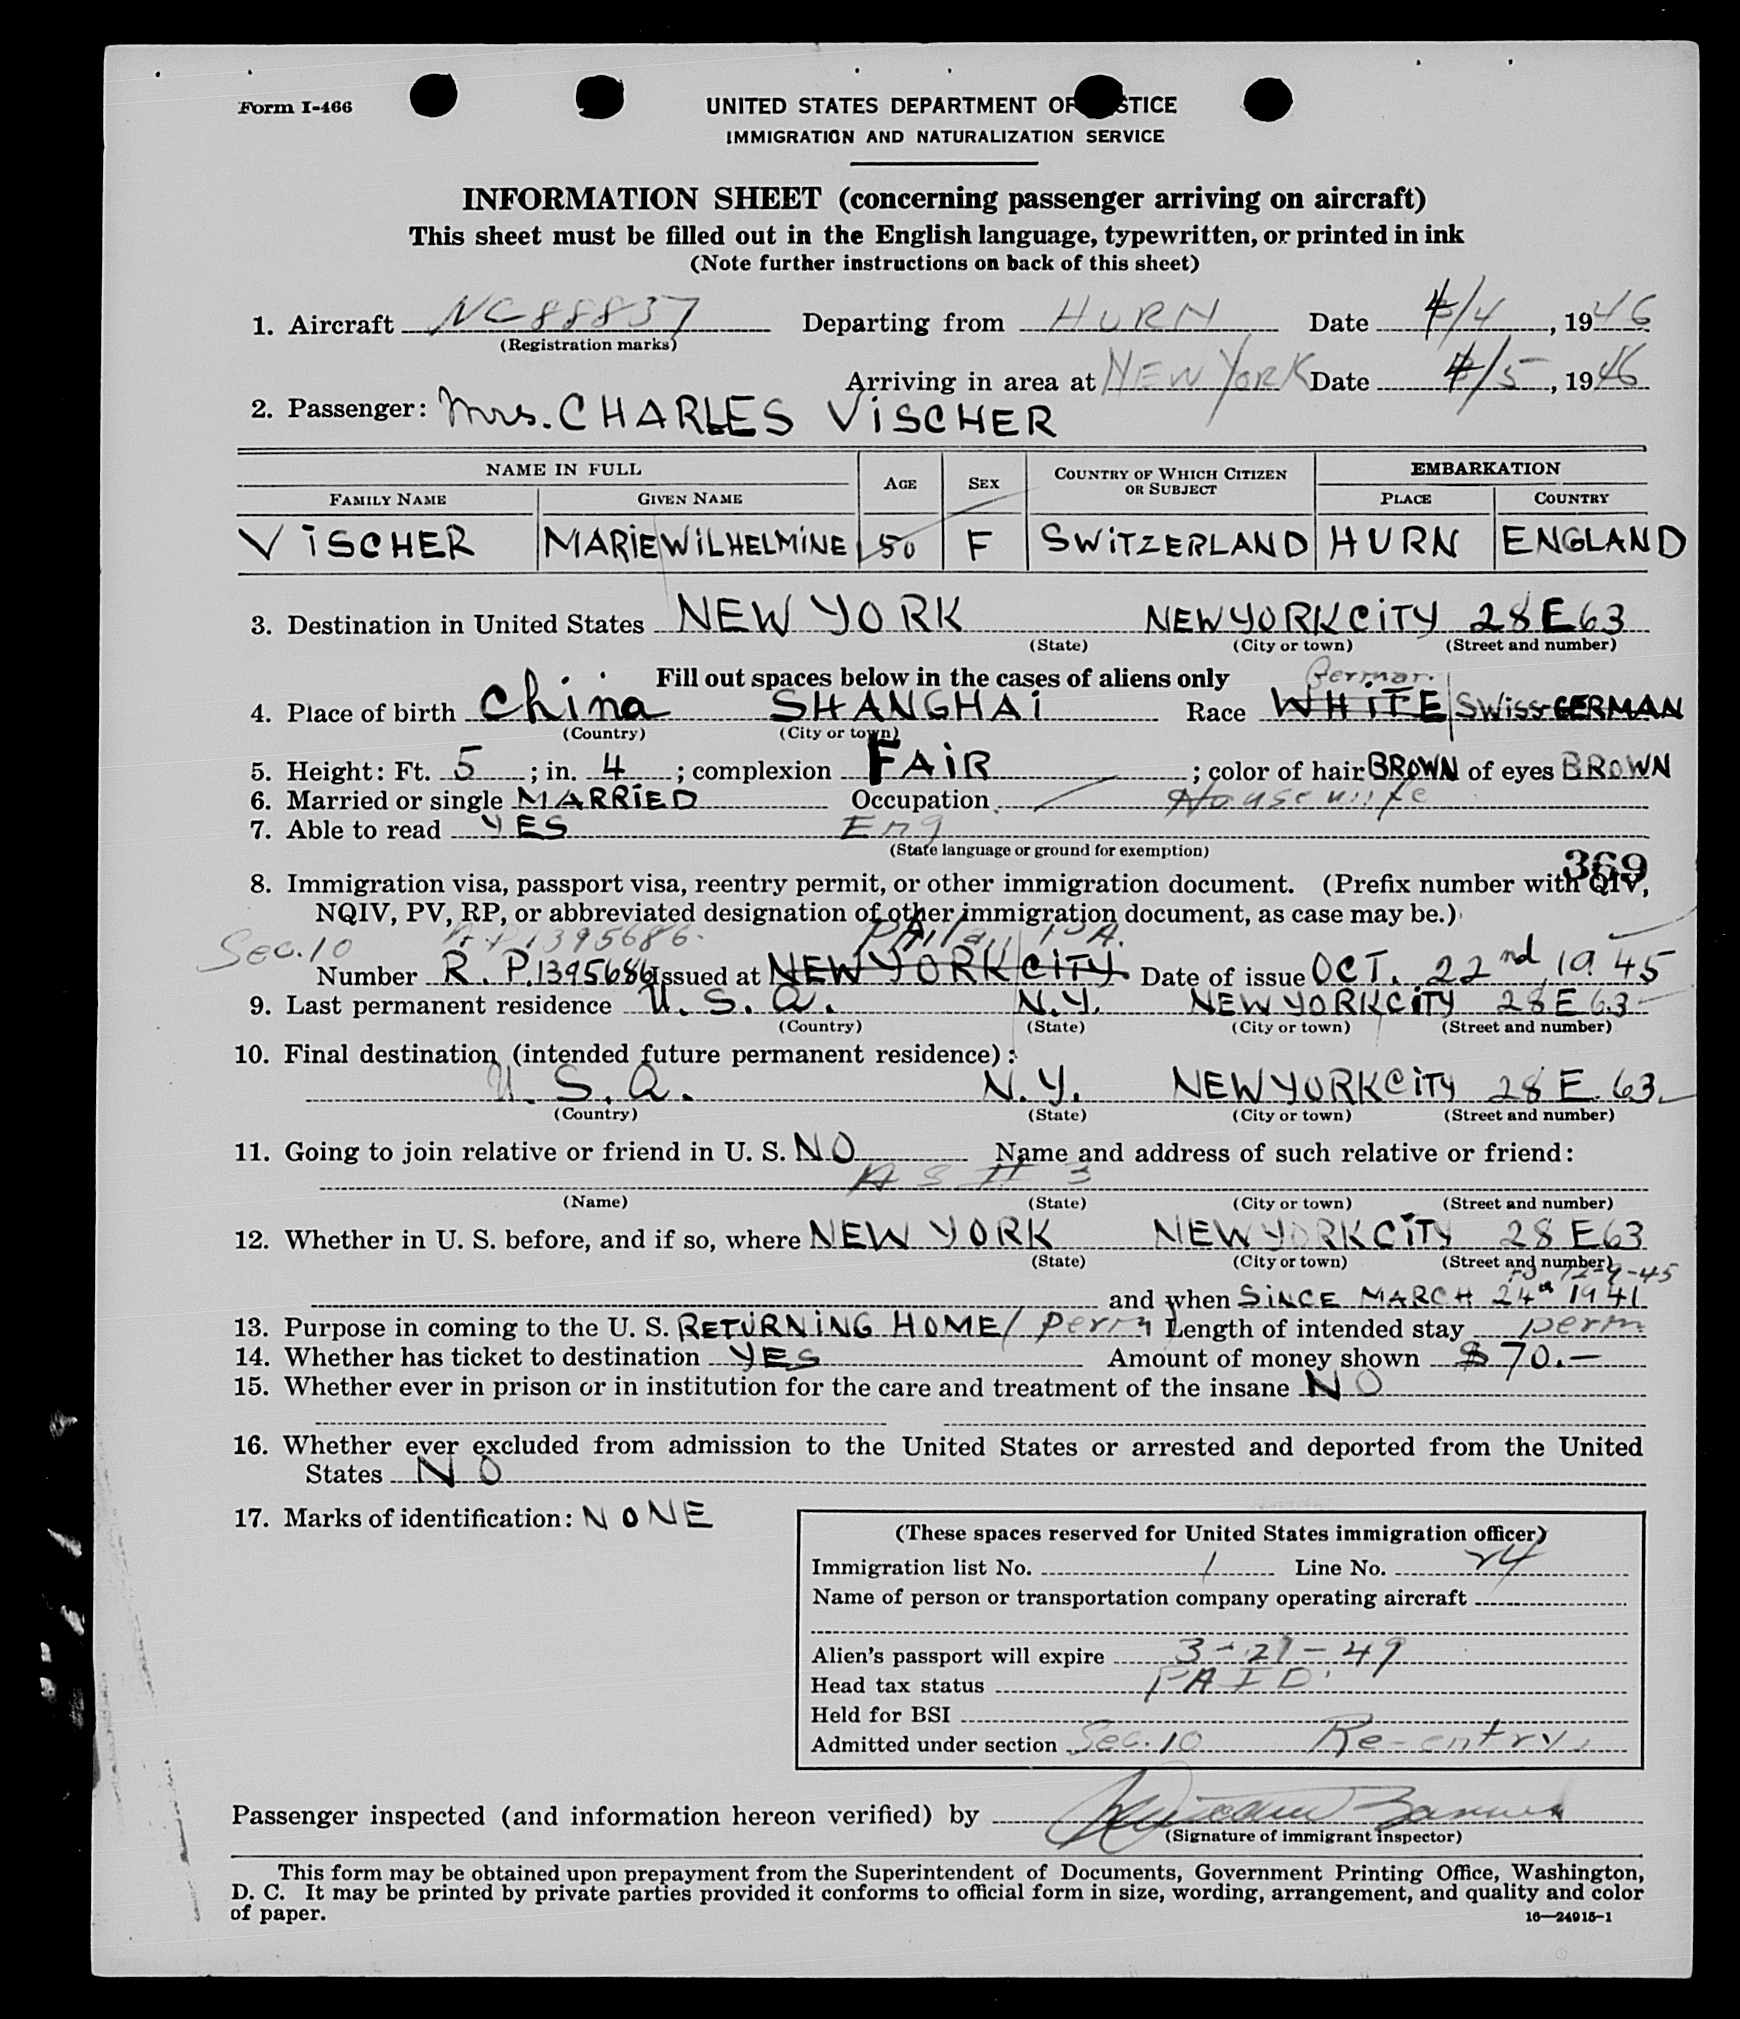 Form I-466
UNITED STATES DEPARTMENT OF JUSTICE
IMMIGRATION AND NATURALIZATION SERVICE
INFORMATION SHEET (concerning passenger arriving on aircraft)
This sheet must be filled out in the English language, typewritten, or printed in ink
(Note further instructions on back of this sheet)
1. Aircraft NC88837 Departing from HURN Date 4/4, 1946
(Registration marks)
Arriving in area at NEW YORK Date 4/5, 1946
2. Passenger: Mrs. CHARLES ViSCHER
NAME IN FULL AGE SEX COUNTRY OF WHICH CITIZEN OR SUBJECT EMBARKATION
FAMILY NAME GIVEN NAME PLACE COUNTRY
ViSCHER MARiE WiLHELMiNE 50 F SWiTZERLAND HURN ENGLAND
3. Destination in United States NEW YORK NEW YORK CiTY 28 E 63
(State) (City or town) (Street and number)
Fill out spaces below in the cases of aliens only German.
4. Place of birth China SHANGHAi Race WHiTE SWiss GERMAN
(Country) (City or town)
5. Height: Ft. 5; in. 4; complexion FAiR; color of hair BROWN of eyes BROWN
6. Married or single MARRiED Occupation Housewife
7. Able to read YES Eng
(State language or ground for exemption)
369
8. Immigration visa, passport visa, reentry permit, or other immigration document. (Prefix number with QIV,
NQIV, PV, RP, or abbreviated designation of other immigration document, as case may be.)
Sec. 10 1395686 Phila., PA.
Number R.P. 1395686 Issued at NEW YORK CiTY Date of issue OCT. 22nd, 1945
9. Last permanent residence U.S.A. N.Y. NEW YORK CiTY 28 E 63
(Country) (State) (City or town) (Street and number)
10. Final destination (intended future permanent residence):
U.S.A. N.Y. NEW YORK CiTY 28 E. 63
(Country) (State) (City or town) (Street and number)
11. Going to join relative or friend in U. S. NO Name and address of such relative or friend:
AS # 3
(Name) (State) (City or town) (Street and number)
12. Whether in U. S. before, and if so, where NEW YORK NEW YORK CiTY 28 E 63
(State) (City or town) (Street and number)
to 12-9-45
and when SiNCE MARCH 24th 1941
13. Purpose in coming to the U. S. RETURNiNG HOME/ Perm Length of intended stay perm
14. Whether has ticket to destination YES Amount of money shown $70.—
15. Whether ever in prison or in institution for the care and treatment of the insane NO
16. Whether ever excluded from admission to the United States or arrested and deported from the United
States NO
17. Marks of identification: NONE
(These spaces reserved for United States immigration officer)
Immigration list No. 1 Line No. 24
Name of person or transportation company operating aircraft
Alien's passport will expire 3-21-49
Head tax status PAID
Held for BSI
Admitted under section Sec. 10 Re-entry
Passenger inspected (and information hereon verified) by
(Signature of immigrant inspector)
This form may be obtained upon prepayment from the Superintendent of Documents, Government Printing Office, Washington,
D. C. It may be printed by private parties provided it conforms to official form in size, wording, arrangement, and quality and color
of paper.
16—24915-1